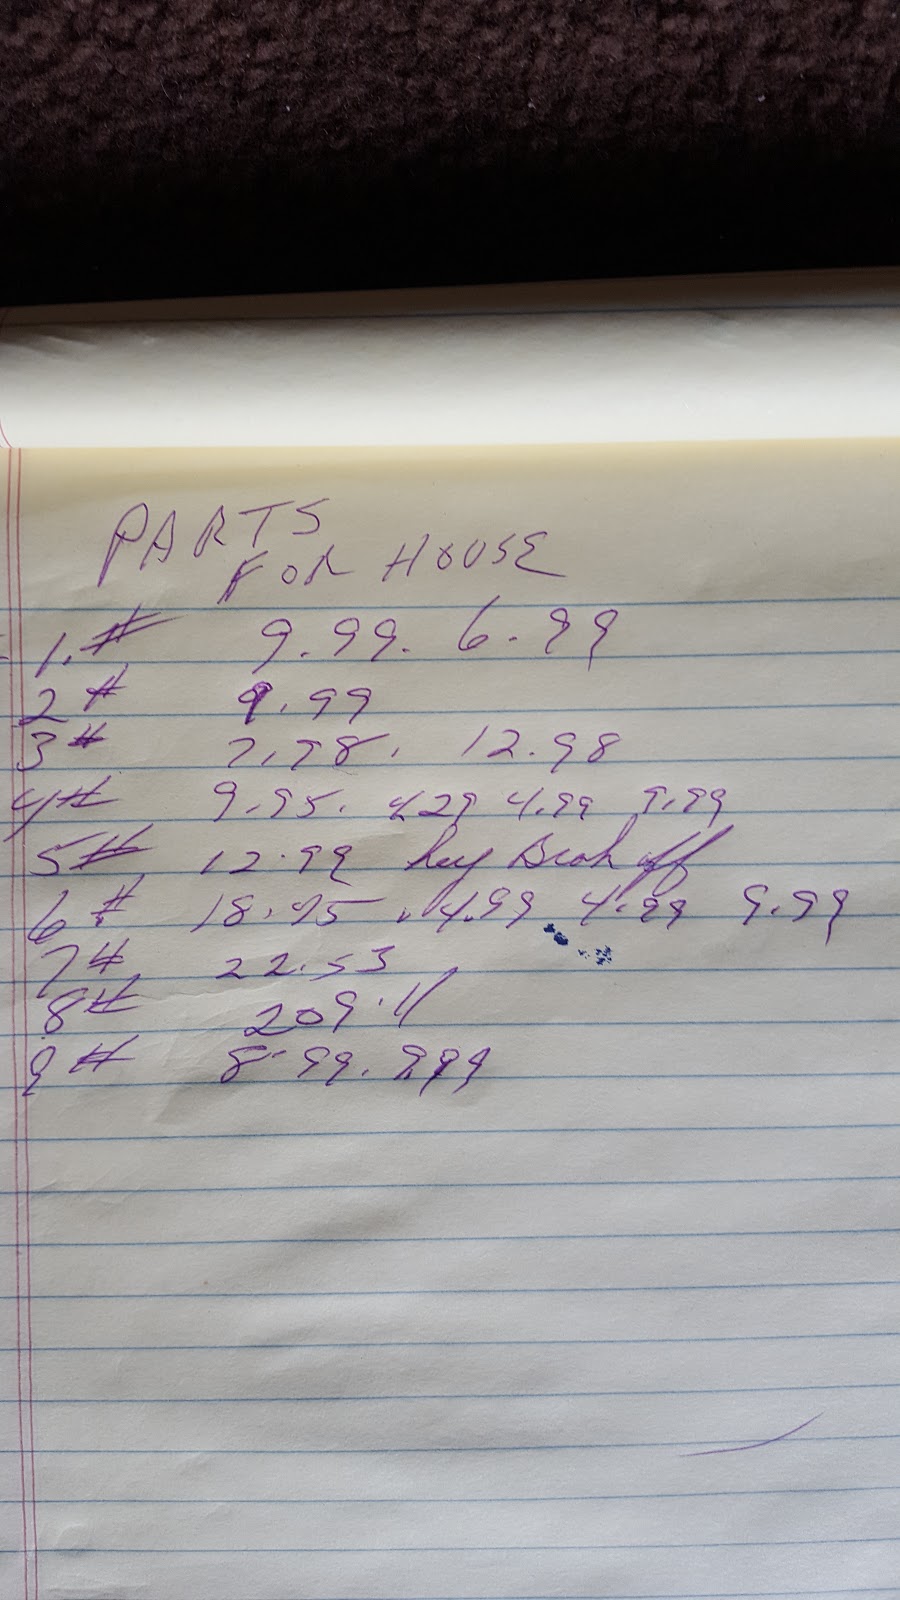 PARTS
FOR HOUSE
1.# 9.99. 6.99
2# 9.99
3# 7.98. 12.98
4# 9.95. 4.29 4.99 9.99
5# 12.99 key Broh off
6# 18.95 . 4.99 4.99 9.99
7# 22.53
8# 209.11
9# 8.99. 9.99